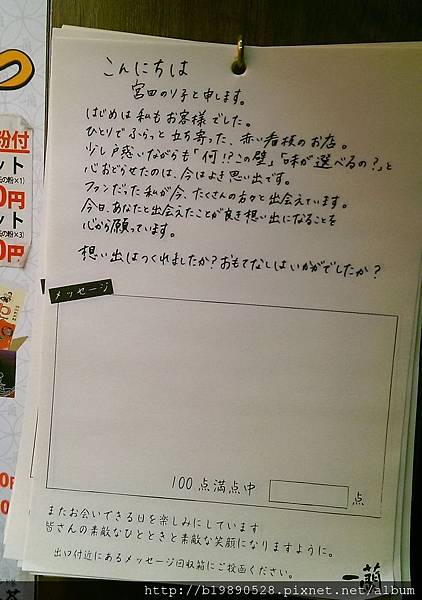 こんにちは
宮田のり子と申します。
はじめは私もお客様でした。
ひとりでふらっと立ち寄った、赤い看板のお店。
少し戸惑いながらも「何!?この壁」「味が選べるの?」と
心おどらせたのは、今はよき思い出です。
ファンだった私が今、たくさんの方々と出会えています。
今日、あなたと出会えたことが良き想い出になることを
心から願っています。
想い出はつくれましたか?おもてなしはいかがでしたか?
メッセージ
100点満点中
点
またお会いできる日を楽しみにしています
皆さんの素敵なひとときと素敵な笑顔になりますように。
出口付近にあるメッセージ回収箱にご投函ください。
一蘭
粉付
ット
の粉×1)
0円
ット
の粉×3)
0円
http://b19890528.pixnet.net/album